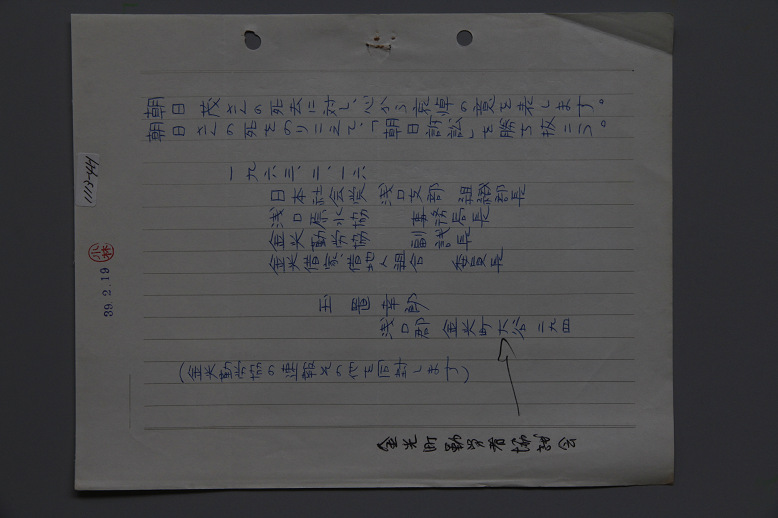 朝日 茂さんの死去に対し、心から哀悼の意を表します。
朝日さんの死をのりこえて、「朝日訴訟」を勝ち抜こう。
一九六三、二、一六
日本社会党 浅口支部 組織部長
浅口原水協 事務局長
金光勤労協 副議長
金光借家借地人組合 委員長
玉 幸郎
浅口郡 金光町大谷二九四
(金光勤労協の速報その他を同封します)
金光町勤労者協議会
1113-44
39.2.19
小林